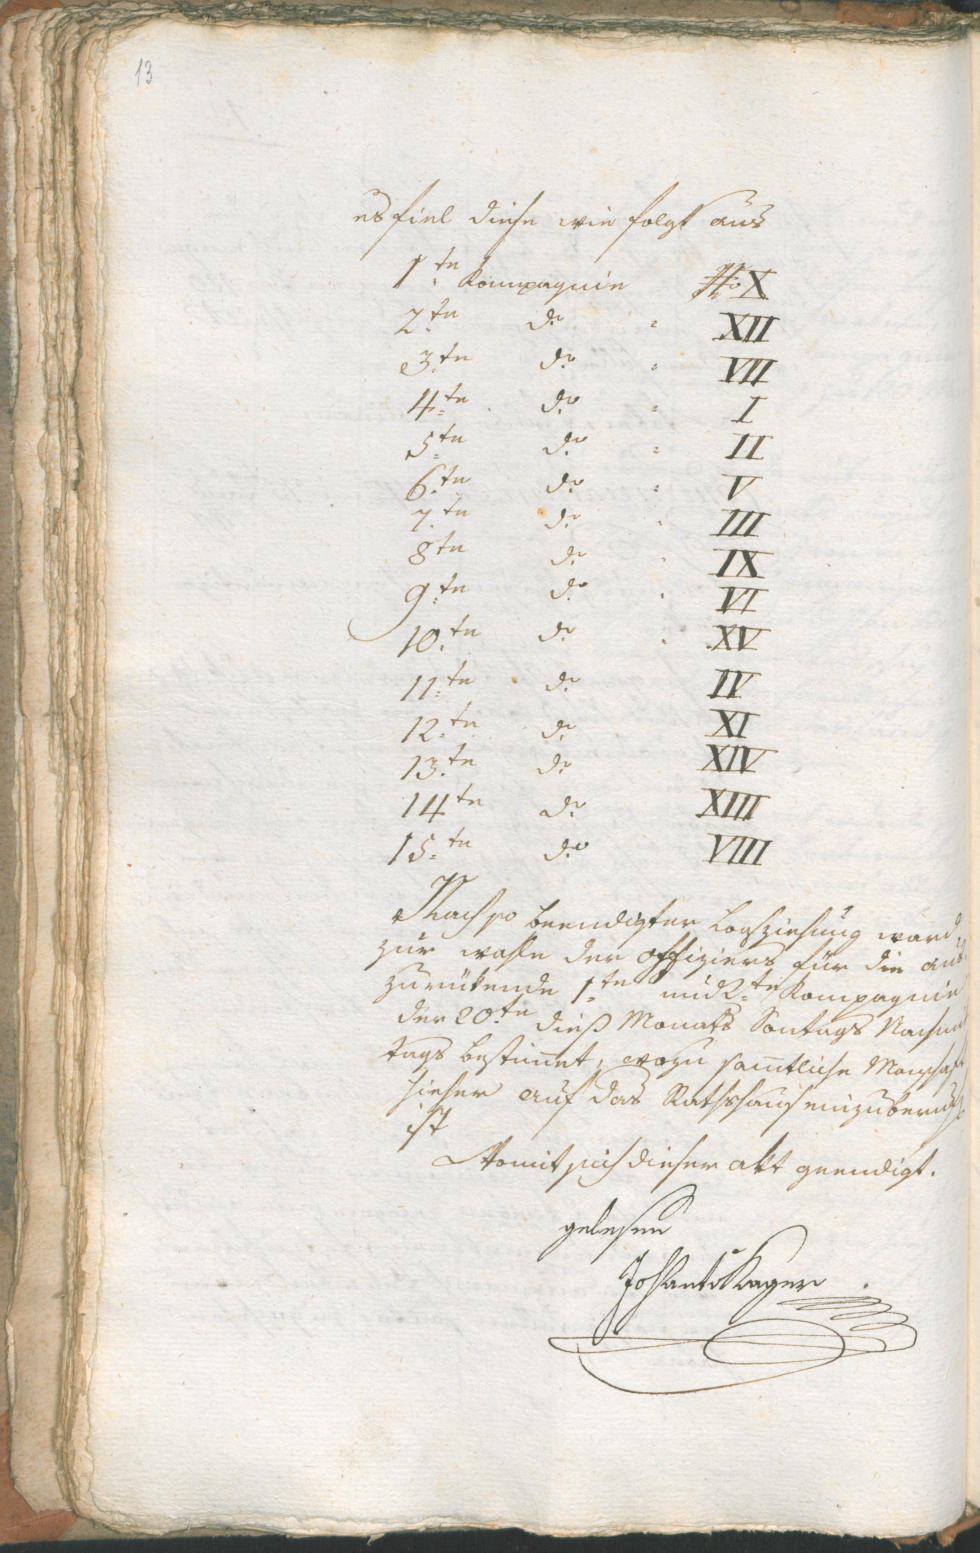 13
es fiel diese wie folgt aus
1te Kompagnie No X
2te do = XII
3te do = VII
4te do = I
5te do = II
6te do = V
7te do = III
8te do = IX
9te do = VI
10te do = XV
11te do IV
12te do XI
13te do XIV
14te do XIII
15te do VIII
Nach so beendigter Losziehung ward
zur wahle der offiziers für die aus
zurükende 1te und 2te Kompagnie
der 20te dieß Monats Sontags Nachmit
tags bestimet, wozu samtliche Manschaft
hieher auf das Rathshaus einzuberufen
ist
Womit sich dieser akt geendigt.
gelesen
Joh Kager